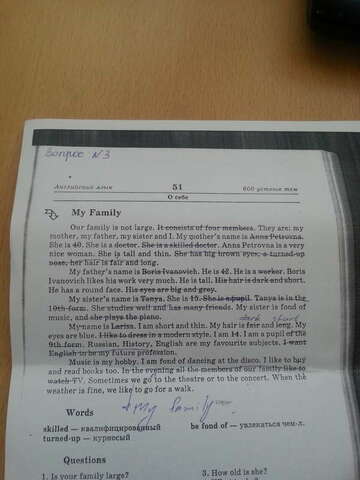 Вопрос №3
Английский язык 51 600 устных тем
О себе
My Family
Our family is not large. It consists of four members. They are: my
mother, my father, my sister and I. My mother's name is Anna Petrovna.
She is 40. She is a doctor. She is a skilled doctor. Anna Petrovna is a very
nice woman. She is tall and thin. She has big brown eyes, a turned-up
nose, her hair is fair and long.
My father's name is Boris Ivanovich. He is 42. He is a worker. Boris
Ivanovich likes his work very much. He is tall. His hair is dark and short.
He has a round face. His eyes are big and grey.
My sister's name is Tanya. She is 15. She is a pupil. Tanya is in the
10th form. She studies well and has many friends. My sister is fond of
music, and she plays the piano.
dark short
My name is Larisa. I am short and thin. My hair is fair and long. My
eyes are blue. I like to dress in a modern style. I am 14. I am a pupil of the
9th form. Russian, History, English are my favourite subjects. I want
English to be my future profession.
Music is my hobby. I am fond of dancing at the disco. I like to buy
and read books too. In the evening all the members of our family like to
watch TV. Sometimes we go to the theatre or to the concert. When the
weather is fine, we like to go for a walk.
Words
My family
skilled — квалифицированный be fond of — увлекаться чем-л.
turned-up — курносый
Questions
1. Is your family large? 3. How old is she?